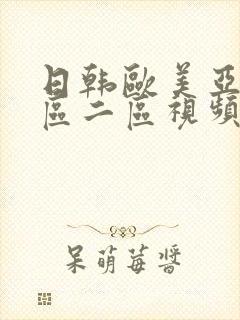 日韩歐美亞
區二區視頻
呆萌莓醬